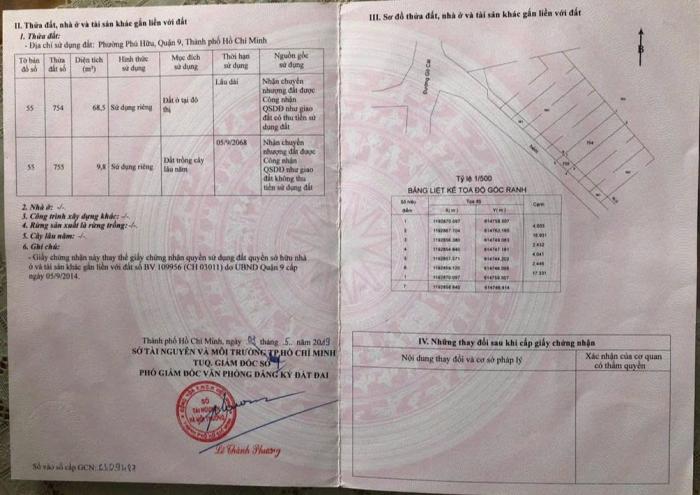 II. Thửa đất, nhà ở và tài sản khác gắn liền với đất
1. Thửa đất:
- Địa chỉ sử dụng đất: Phường Phú Hữu, Quận 9, Thành phố Hồ Chí Minh
Tờ bản đồ số | Thửa đất số | Diện tích (m²) | Hình thức sử dụng | Mục đích sử dụng | Thời hạn sử dụng | Nguồn gốc sử dụng
55 | 754 | 68,5 | Sử dụng riêng | Đất ở tại đô thị | Lâu dài | Nhận chuyển nhượng đất được Công nhận QSDĐ như giao đất có thu tiền sử dụng đất
55 | 755 | 9,8 | Sử dụng riêng | Đất trồng cây lâu năm | 05/9/2068 | Nhận chuyển nhượng đất được Công nhận QSDĐ như giao đất không thu tiền sử dụng đất
2. Nhà ở: -/-
3. Công trình xây dựng khác: -/-
4. Rừng sản xuất là rừng trồng: -/-
5. Cây lâu năm: -/-
6. Ghi chú:
- Giấy chứng nhận này thay thế giấy chứng nhận quyền sử dụng đất quyền sở hữu nhà
ở và tài sản khác gắn liền với đất số BV 109956 (CH 03011) do UBND Quận 9 cấp
ngày 05/9/2014.
Thành phố Hồ Chí Minh, ngày tháng 5 năm 2019
SỞ TÀI NGUYÊN VÀ MÔI TRƯỜNG TP.HỒ CHÍ MINH
TUQ. GIÁM ĐỐC SỞ
PHÓ GIÁM ĐỐC VĂN PHÒNG ĐĂNG KÝ ĐẤT ĐAI
SỞ
TÀI NGUYÊN
VÀ MÔI TRƯỜNG
Lê Thành Phương
Số vào sổ cấp GCN:
III. Sơ đồ thửa đất, nhà ở và tài sản khác gắn liền với đất
B
Đường Gò Cát
754
Tỷ lệ 1/500
BẢNG LIỆT KÊ TỌA ĐỘ GÓC RANH
Số hiệu điểm | Tọa độ | Cạnh
X(m) | Y(m)
IV. Những thay đổi sau khi cấp giấy chứng nhận
Nội dung thay đổi và cơ sở pháp lý | Xác nhận của cơ quan có thẩm quyền